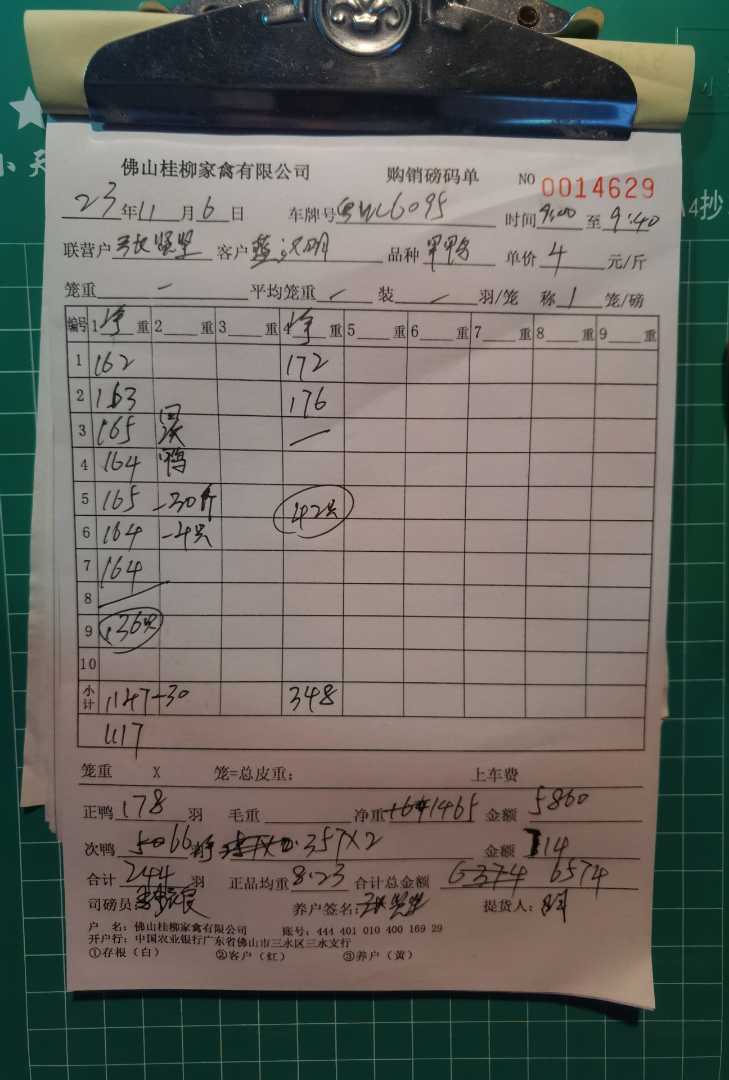 佛山桂柳家禽有限公司 购销磅码单 NO 0014629
23年11月6日 车牌号 6095 时间9:00至9:40
联营户 客户 明 品种 单价4元/斤
笼重 — 平均笼重 — 装 — 羽/笼 称 1 笼/磅
编号 1净重 2 重 3 重 4净重 5 重 6 重 7 重 8 重 9 重
1 162 172
2 163 176
3 165 回 —
4 164 鸭
5 165 -30斤 42只
6 164 -4只
7 164
8
9 136只
10
小计 1147-30 348
1117
笼重 X 笼=总皮重: 上车费
正鸭178羽 毛重 净重 1465 金额5860
次鸭 66 357X2 金额714
合计244羽 正品均重8.23 合计总金额 6374 6574
司磅员 养户签名: 提货人:
户 名: 佛山桂柳家禽有限公司 账号: 444 401 010 400 169 29
开户行: 中国农业银行广东省佛山市三水区三水支行
①存根(白) ②客户(红) ③养户(黄)
4抄